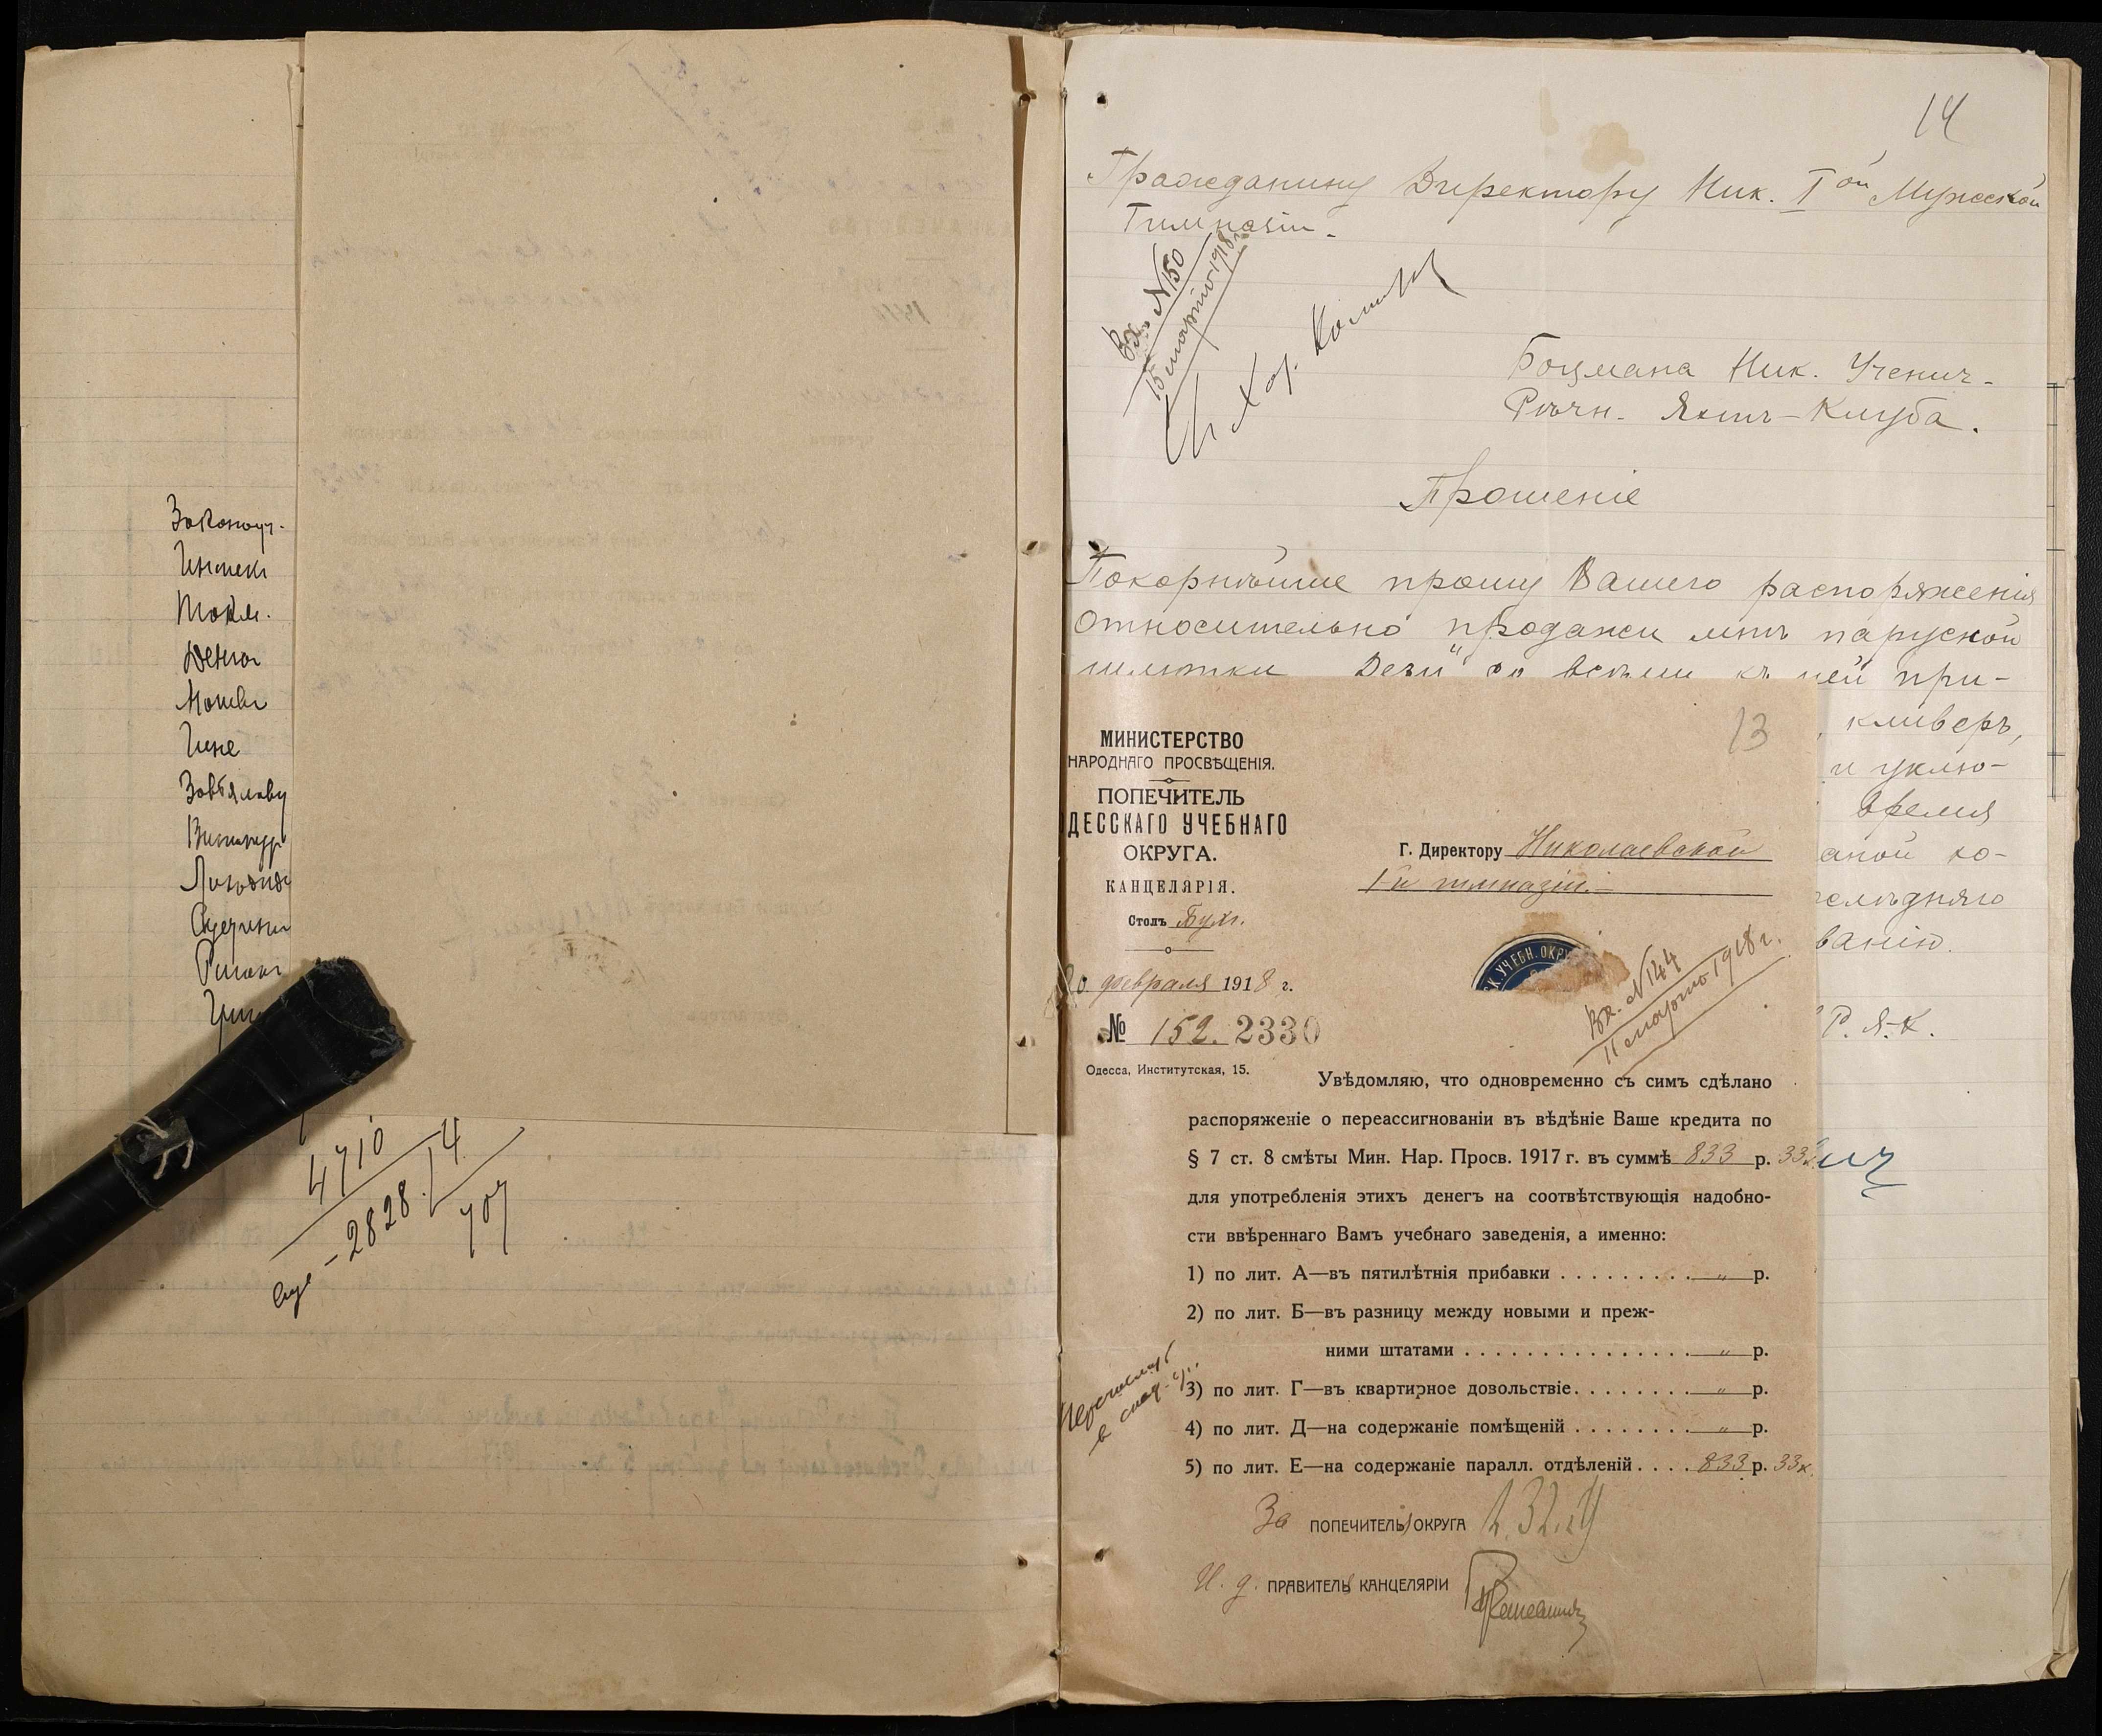 Законоуч.
Инспек
Матем.
4710
2828 4
707
14
Гражданину Директору Ник. I ой Мужской
Гимназіи.
Вх. № 150
15 марта 1918 г.
Боцмана Ник. Ученич.
Рѣчн. Яхтъ-Клуба.
Прошеніе
Покорнѣйше прошу Вашего распоряженія
относительно продажи мнѣ парусной
шлюпки „Дези" со всѣми къ ней при-
, кливеръ,
и уклю-
время
аной ко-
слѣдняго
ванію.
Р. Я.-К.
13
МИНИСТЕРСТВО
НАРОДНАГО ПРОСВѢЩЕНІЯ.
ПОПЕЧИТЕЛЬ
ДЕССКАГО УЧЕБНАГО
ОКРУГА.
КАНЦЕЛЯРІЯ.
Столъ Бухг.
20 февраля 1918 г.
№ 152. 2330
Одесса, Институтская, 15.
Г. Директору Николаевской
1-й гимназіи.
К УЧЕБН. ОКРУ
Вх. № 144
11 марта 1918 г.
Увѣдомляю, что одновременно съ симъ сдѣлано
распоряженіе о переассигнованіи въ вѣдѣніе Ваше кредита по
§ 7 ст. 8 смѣты Мин. Нар. Просв. 1917 г. въ суммѣ 833 р. 33 к.
для употребленія этихъ денегъ на соотвѣтствующія надобно-
сти ввѣреннаго Вамъ учебнаго заведенія, а именно:
1) по лит. А—въ пятилѣтнія прибавки . . . . . . . . . „ р.
2) по лит. Б—въ разницу между новыми и преж-
ними штатами . . . . . . . . . . . . . . . . „ р.
3) по лит. Г—въ квартирное довольствіе. . . . . . . . „ р.
4) по лит. Д—на содержаніе помѣщеній . . . . . . . . „ р.
5) по лит. Е—на содержаніе паралл. отдѣленій . . . . 833 р. 33 к.
За ПОПЕЧИТЕЛЬ ОКРУГА
И. д. ПРАВИТЕЛЬ КАНЦЕЛЯРІИ